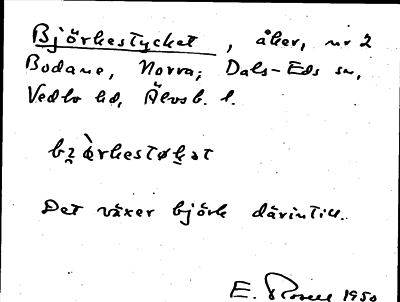 Björkestycket, åker, nr 2
Bodane, Norra; Dals-Eds sn,
Vedbo hd, Älvsb. l.
bɪ̯ö̀rkestøkət
Det växer björk därintill.
E. 1950